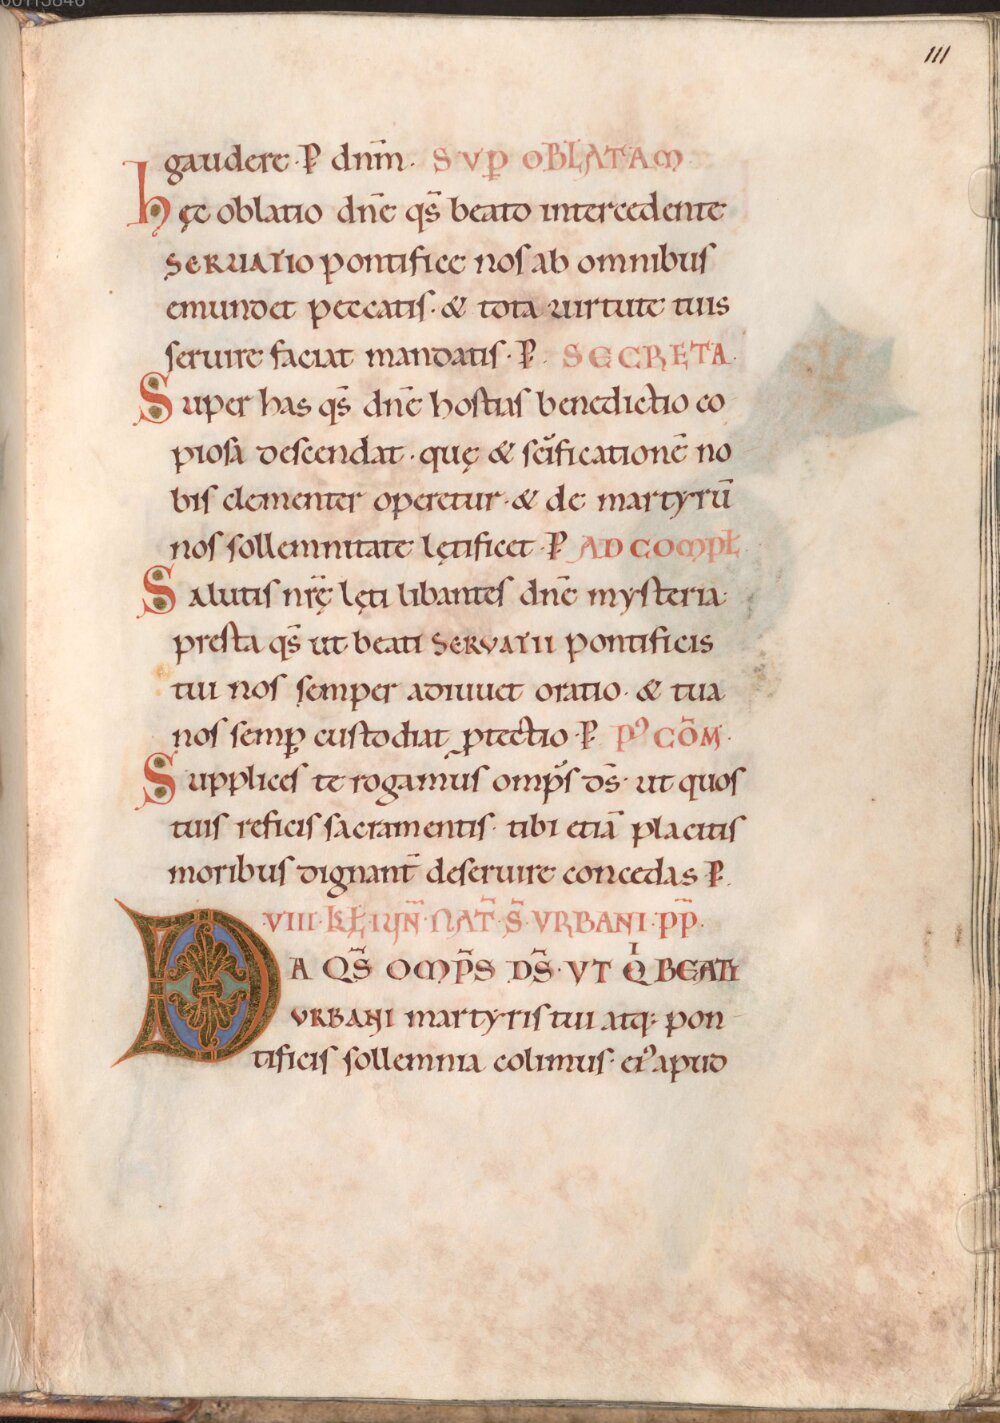 111
gaudere· P̄ dnm̄. SUP̱ OBLATAM
hęc oblatio dnē qs̄ beato intercedente
SERUATIO pontifice nos ab omnibus
emundet peccatis· & tota uirtute tuis
seruire faciat mandatis· P̄. SECRETA.
Super has qs̄ dnē hostias benedictio co
piosa descendat· quę & scificationē no
bis clementer operetur· & de martyrū
nos sollemnitate lętificet· P̄ AD COMPŁ
Salutis nrę̄ lęti libantes dnē mysteria·
presta qs̄ ut beati SERVATII pontificis
tui nos semper adiuuet oratio· & tua
nos semp̱ custodiat ꝓtectio· P̄ Pꝰ COM̄·
Supplices te rogamus omps̄ ds̄· ut quos
tuis reficis sacramentis· tibi etiā placitis
moribus dignant̄ deseruire concedas P̄.
VIII· KŁ IUN̄· NAT̄ S̄ VRBANI· PP̄·
DA QS̄ OMP̄S DS̄· VT QI BEATI
VRBANI martyris tui atq: pon
tificis sollemnia colimus· eiꝰ apud